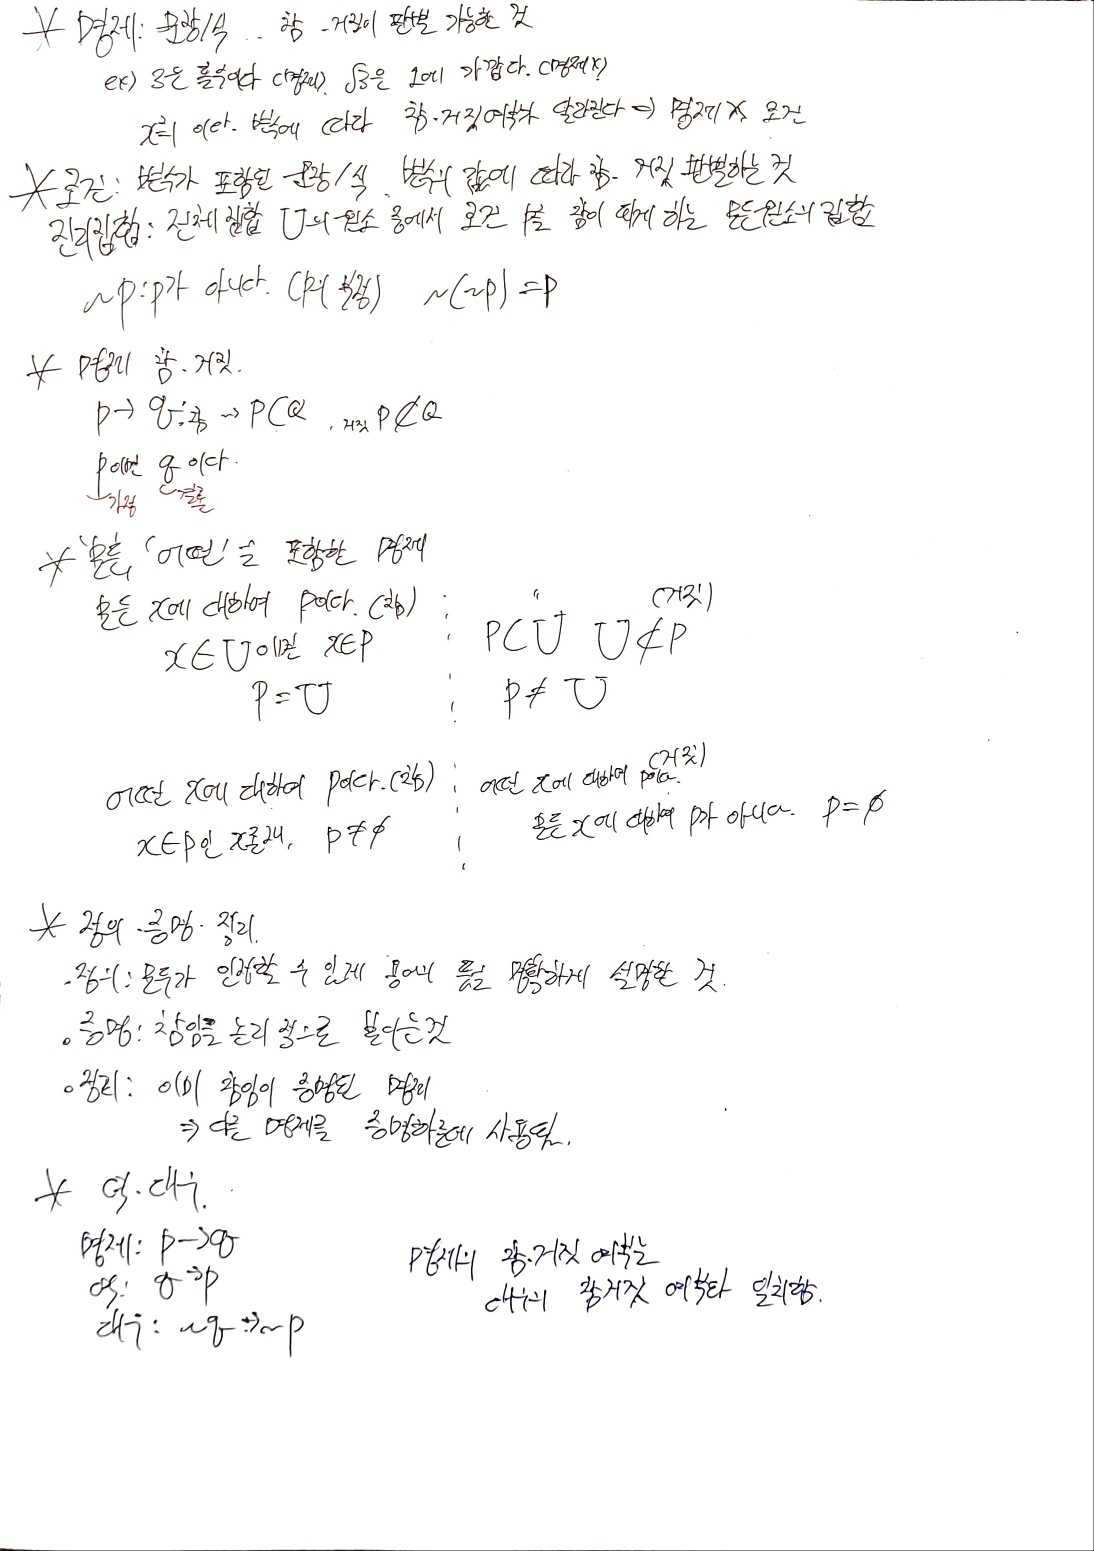 * 명제: 문장/식 .. 참 . 거짓이 판별 가능한 것
ex) 3은 홀수이다 (명제). √3은 1에 가깝다. (명제x)
x=1 이다. 변수에 따라 참.거짓여부가 달라진다 ⇒ 명제 x 조건
* 조건: 변수가 포함된 문장/식. 변수의 값에 따라 참. 거짓 판별하는 것
진리집합: 전체집합 U의 원소 중에서 조건 p를 참이 되게 하는 모든 원소의 집합
~p: p가 아니다. (p의 부정) ~(~p) = p
* 명제 참.거짓.
p → q:참 → P⊂Q , 거짓 P⊄Q
p이면 q이다.
가정 결론
* '모든', '어떤'을 포함한 명제
모든 x에 대하여 p이다. (참) " (거짓)
x∈U이면 x∈P P⊂U U⊄P
P=U P≠U
어떤 x에 대하여 p이다.(참) 어떤 x에 대하여 p이다. (거짓)
x∈P인 x존재, P≠∅ 모든 x에 대하여 p가 아니다. P=∅
* 정의.증명.정리.
.정의: 모두가 인정할 수 있게 용어의 뜻을 명확하게 설명한 것.
. 증명: 참임을 논리적으로 보이는것
. 정리: 이미 참임이 증명된 명제
⇒ 다른 명제를 증명하는데 사용됨.
* 역.대우.
명제: p→q
역: q→p
대우: ~q→~p
명제의 참.거짓 여부는
대우의 참거짓 여부와 일치함.